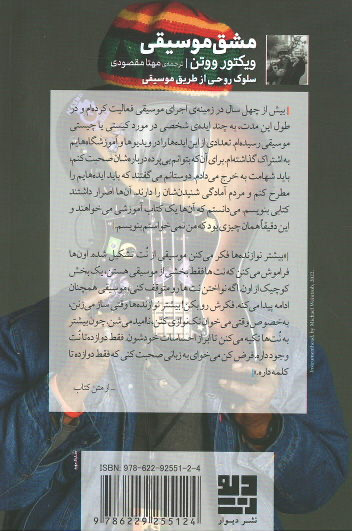 مشق موسیقی
ویکتور ووتن | ترجمه‌ی مهنا مقصودی
سلوک روحی از طریق موسیقی
بیش از چهل سال در زمینه‌ی اجرای موسیقی فعالیت کرده‌ام و در
طول این مدت، به چند ایده‌ی شخصی در مورد کیستی یا چیستی
موسیقی رسیده‌ام. تعدادی از این ایده‌ها را در ویدیوها و آموزشگاه‌هایم
به اشتراک گذاشته‌ام. برای آن‌که بتوانم بی‌پرده درباره‌شان صحبت کنم،
باید شهامت به خرج می‌دادم. دوستانم می‌گفتند که باید ایده‌هایم را
مطرح کنم و مردم آمادگی شنیدن‌شان را دارند. آن‌ها اصرار داشتند
کتابی بنویسم. می‌دانستم که آن‌ها یک کتاب آموزشی می‌خواهند و
این دقیقاً همان چیزی بود که من نمی‌خواستم بنویسم.
«بیشتر نوازنده‌ها فکر می‌کنن موسیقی از نُت تشکیل شده. اون‌ها
فراموش می‌کنن که نت‌ها فقط بخشی از موسیقی هستن، یک بخش
کوچیک از اون. اگه نواختن نت‌ها رو متوقف کنی، موسیقی همچنان
ادامه پیدا می‌کنه. فکرش رو بکن! بیشتر نوازنده‌ها وقتی ساز می‌زنن،
به‌خصوص وقتی می‌خوان تک‌نوازی کنن، ناامید می‌شن. چون بیشتر
به نُت‌ها تکیه می‌کنن تا ابراز احساسات خودشون. فقط دوازده تا نُت
وجود داره. فرض کن می‌خوای به زبانی صحبت کنی که فقط دوازده تا
کلمه داره.»
ـ از متن کتاب
Instrumenthead, by Michael Weintrob, 2012
ISBN: 978-622-92551-2-4
9 786229 255124
نشر دیوار